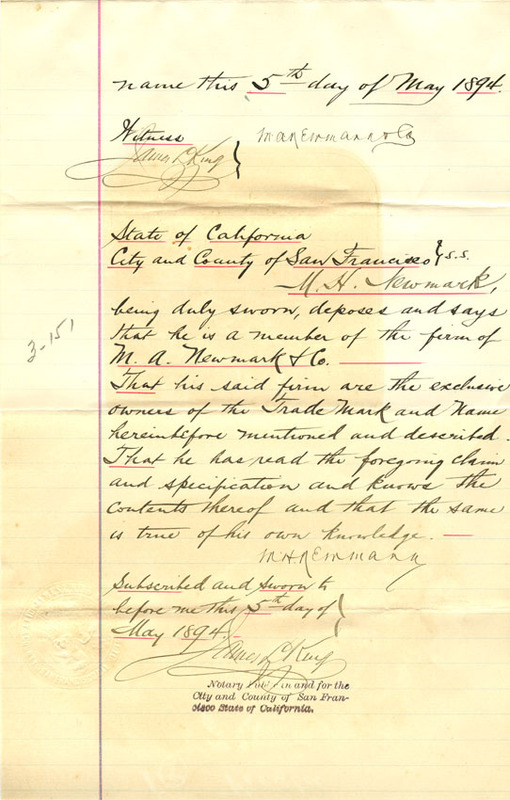 name this 5th day of May 1894.
Witness M A Newmark & Co
James L King }
State of California
City and County of San Francisco } S.S.
M. H. Newmark,
being duly sworn, deposes and says
that he is a member of the firm of
M. A. Newmark & Co.
That his said firm are the exclusive
owners of the Trade Mark and Name
hereinbefore mentioned and described.
That he has read the foregoing claim
and specification and knows the
contents thereof and that the same
is true of his own knowledge.
M H Newmark
Subscribed and Sworn to
before me this 5th day of }
May 1894.
James L King
Notary Public in and for the
City and County of San Fran-
cisco State of California.
3-151